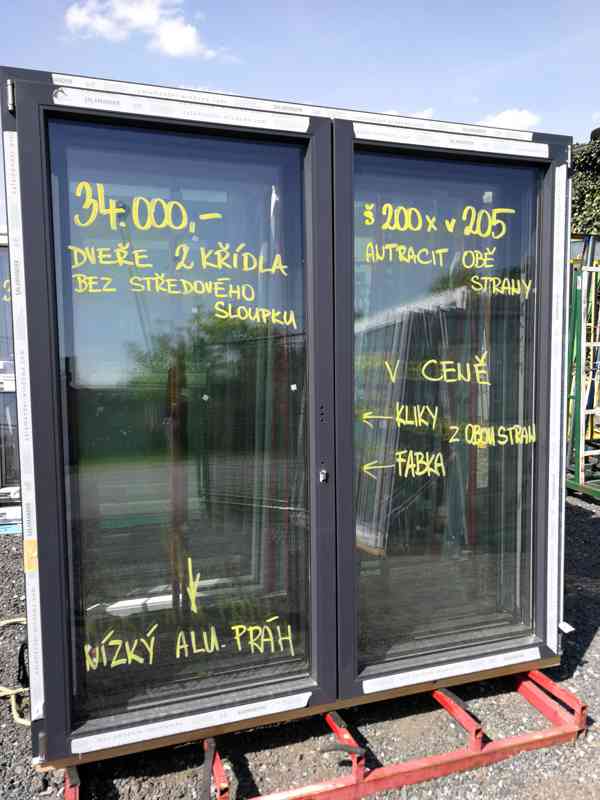 34.000,-
DVEŘE 2 KŘÍDLA
BEZ STŘEDOVÉHO
SLOUPKU
NÍZKÝ ALU. PRÁH
š 200 x v 205
ANTRACIT OBĚ
STRANY
V CENĚ
KLIKY
Z OBOU STRAN
FABKA
SALAMANDER